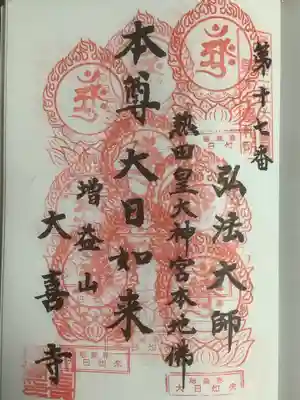 第十七番
弘法大師
熱田皇大神宮本地佛
本尊大日如来
増益山
大喜寺